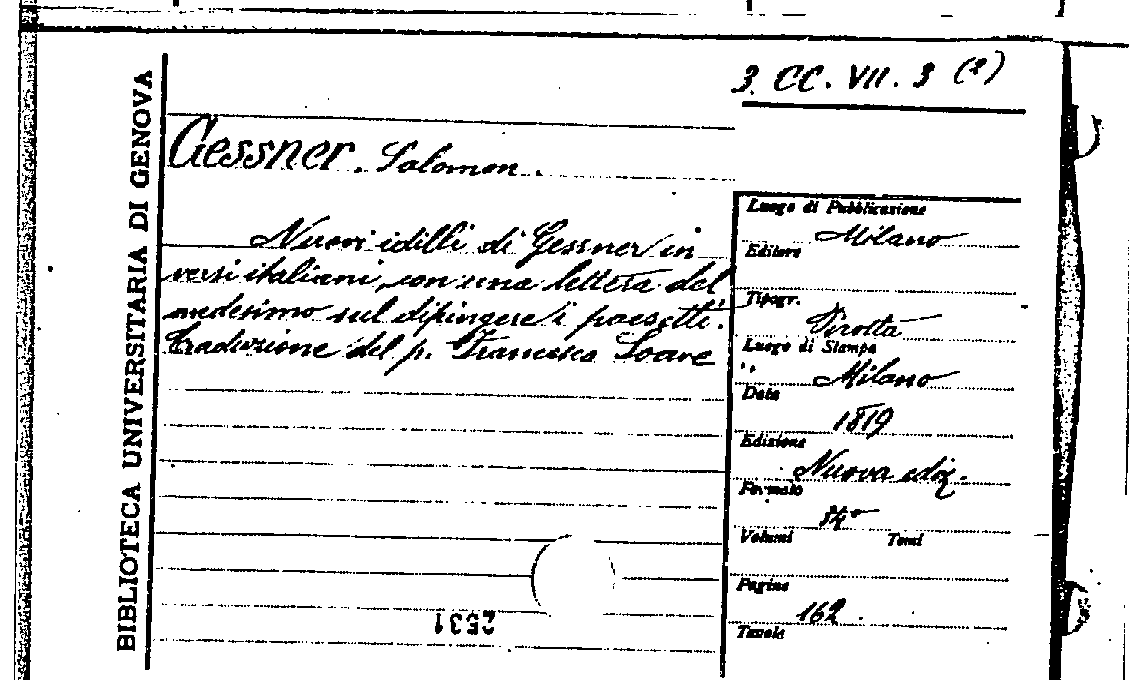 3. CC. VII. 3 (2)
BIBLIOTECA UNIVERSITARIA DI GENOVA
Gessner. Salomon.
Nuovi idilli di Gessner in
versi italiani, con una lettera del
medesimo sul dipingere i paesetti.
Traduzione del p. Francesco Soave
Luogo di Pubblicazione
Milano
Editore
Tipogr.
Pirotta
Luogo di Stampa
Milano
Data
1819
Edizione
Nuova ediz.
Formato
Volumi Tomi
Pagine
162.
Tavole
2531